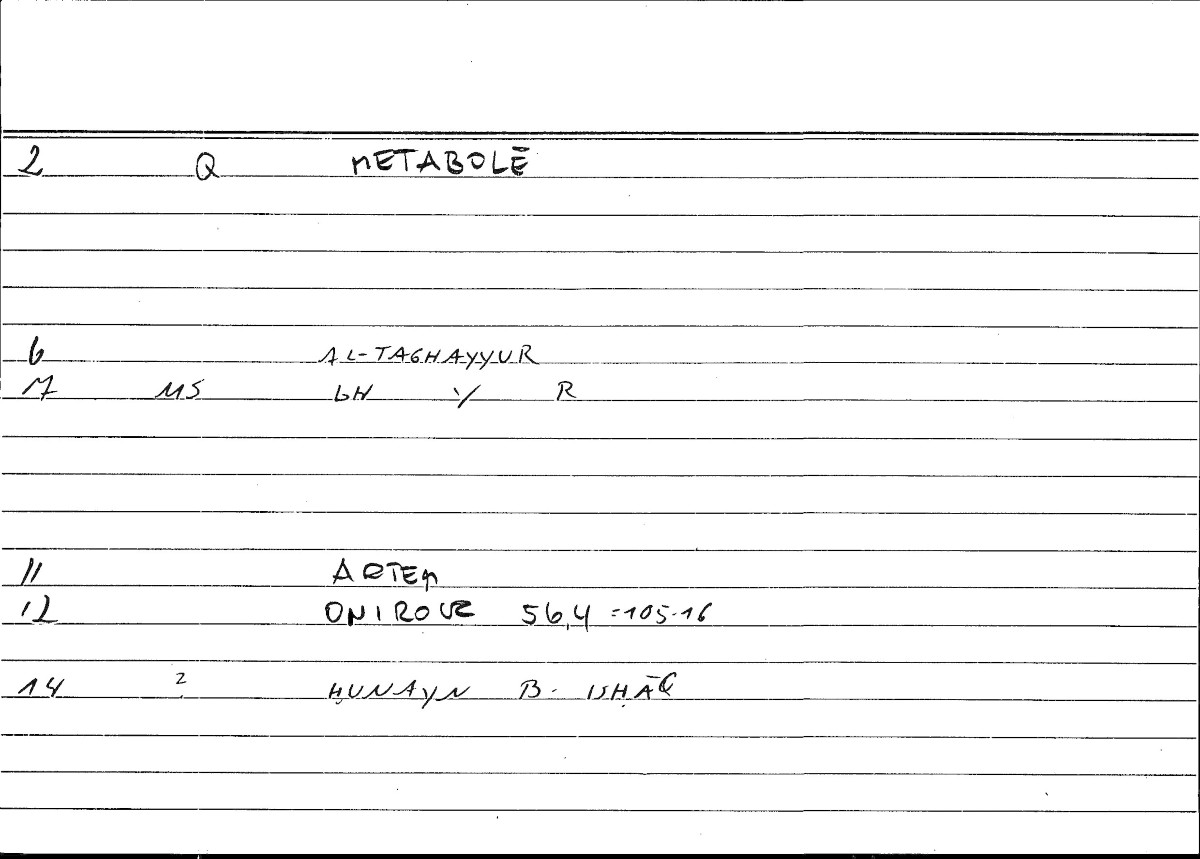 2 Q METABOLĒ
6 AL-TAGHAYYUR
7 MS GH Y R
11 ARTEM
12 ONIROCR 56,4 =105.16
14 2 ḤUNAYN B. ISḤĀQ